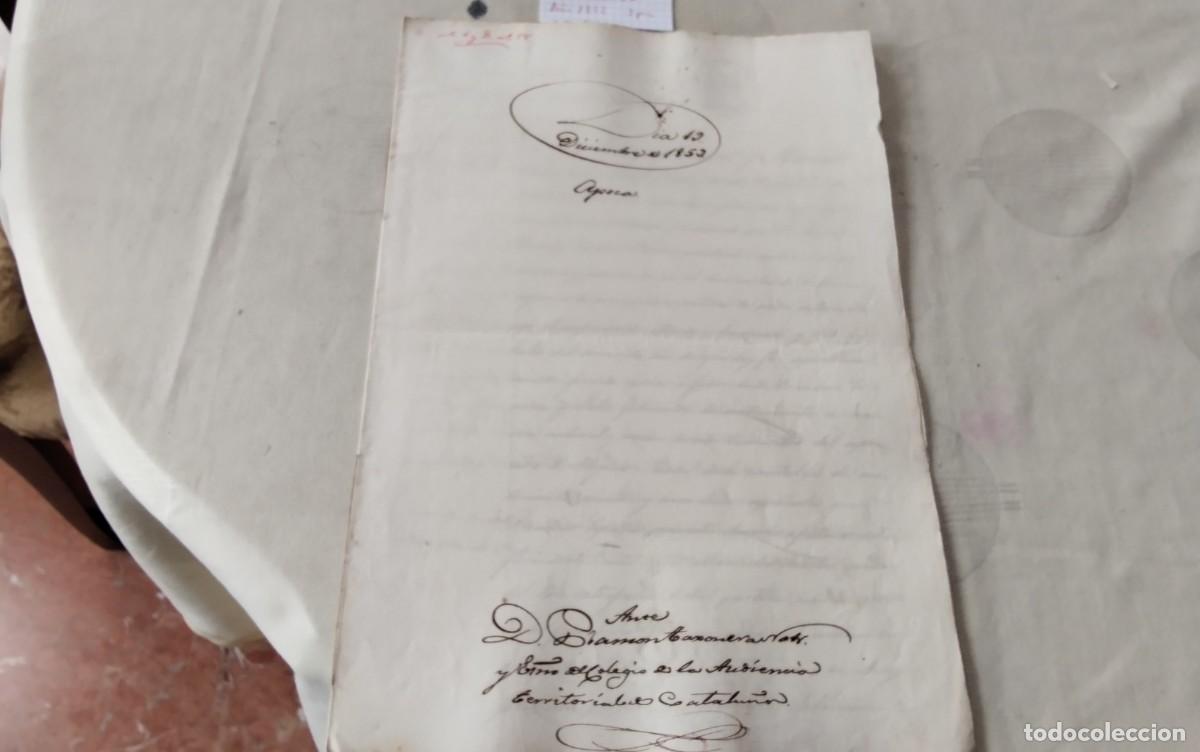 Año 1852
Dia 13
Diciembre de 1853
Apoca
Ante
D. Ramon Taxonera Notr.
y Esno del Colegio de la Audiencia
territorial de Cataluña.
todocoleccion